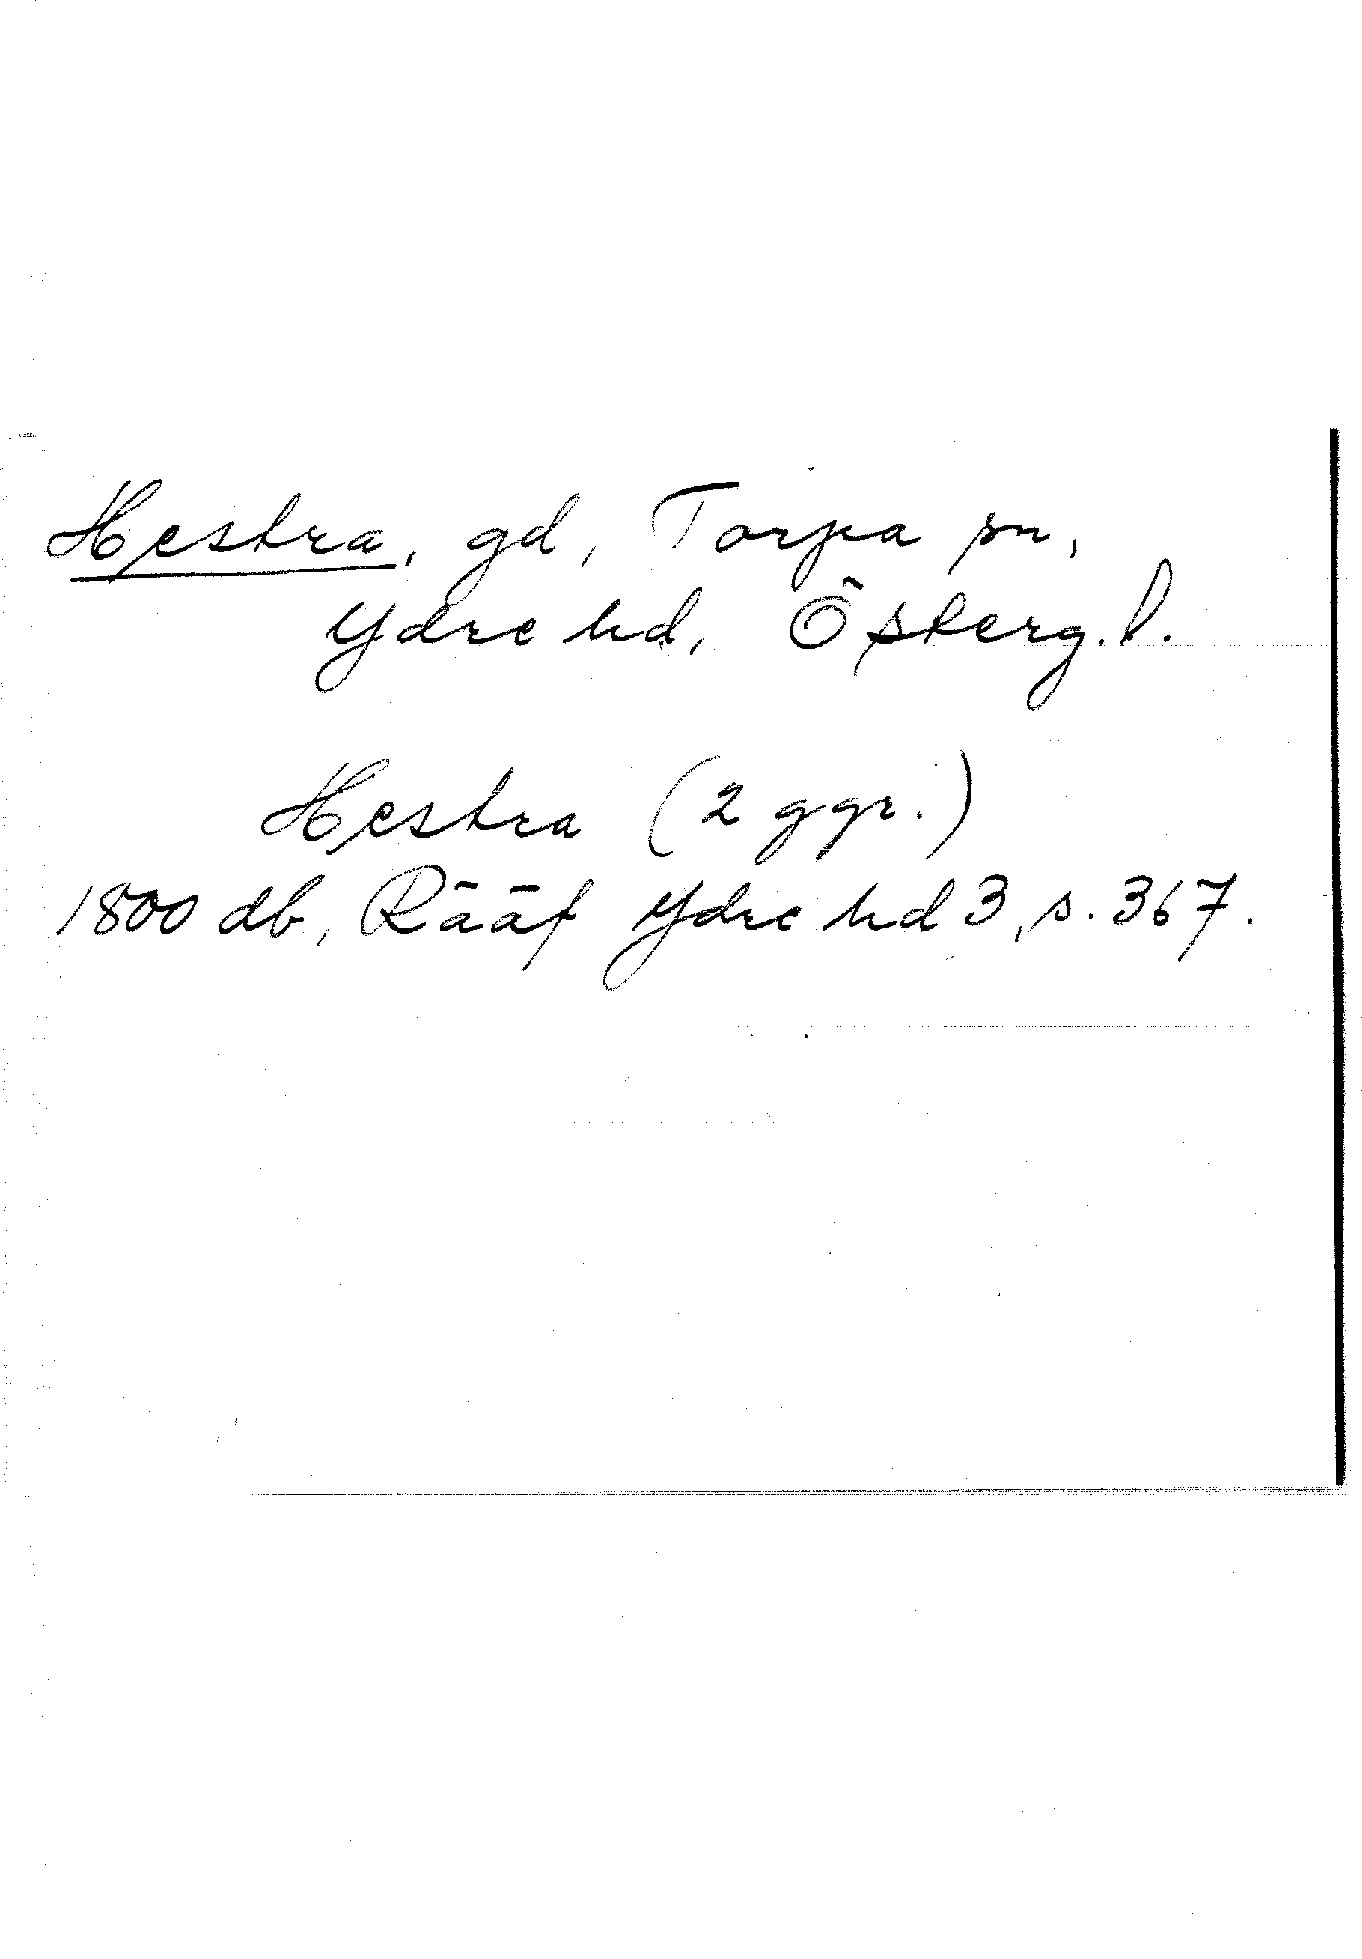 Hestra, gd, Torpa sn,
Ydre hd, Österg. l.
Hestra (2 ggr.)
1800 db, Rääf Ydre hd 3, s. 367.